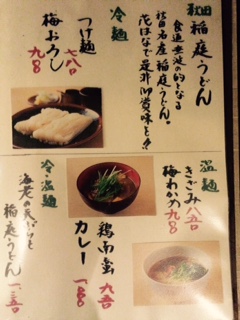 秋田 稲庭うどん
食通垂涎の的となる
秋田名産 稲庭うどん。
花はなで是非御賞味を!!
冷麺
つけ麺 七八〇
梅おろし 九八〇
温麺
きざみ 八五〇
梅わかめ 九八〇
鶏南蛮 九五〇
カレー 一〇八〇
冷・温麺
海老の天ぷらと
稲庭うどん